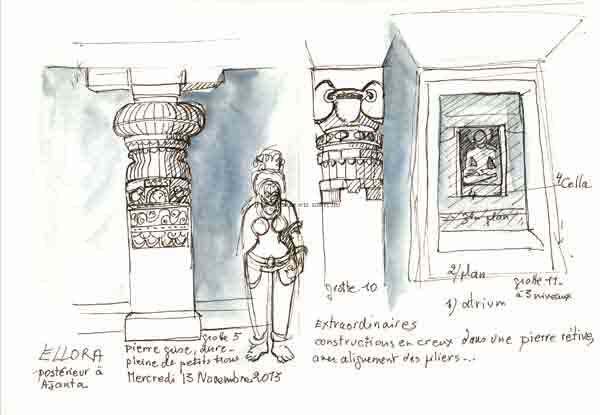 4 Cella
3/ plan
2/ plan
1/ atrium
grotte 11-
à 3 niveaux
grotte 10
Extraordinaires
constructions en creux dans une pierre rétive,
alignement des piliers...
grotte 5
Pierre dure-
pleine de petits trous
Mercredi 13 Novembre 2013
ELLORA
postérieur à
Ajanta